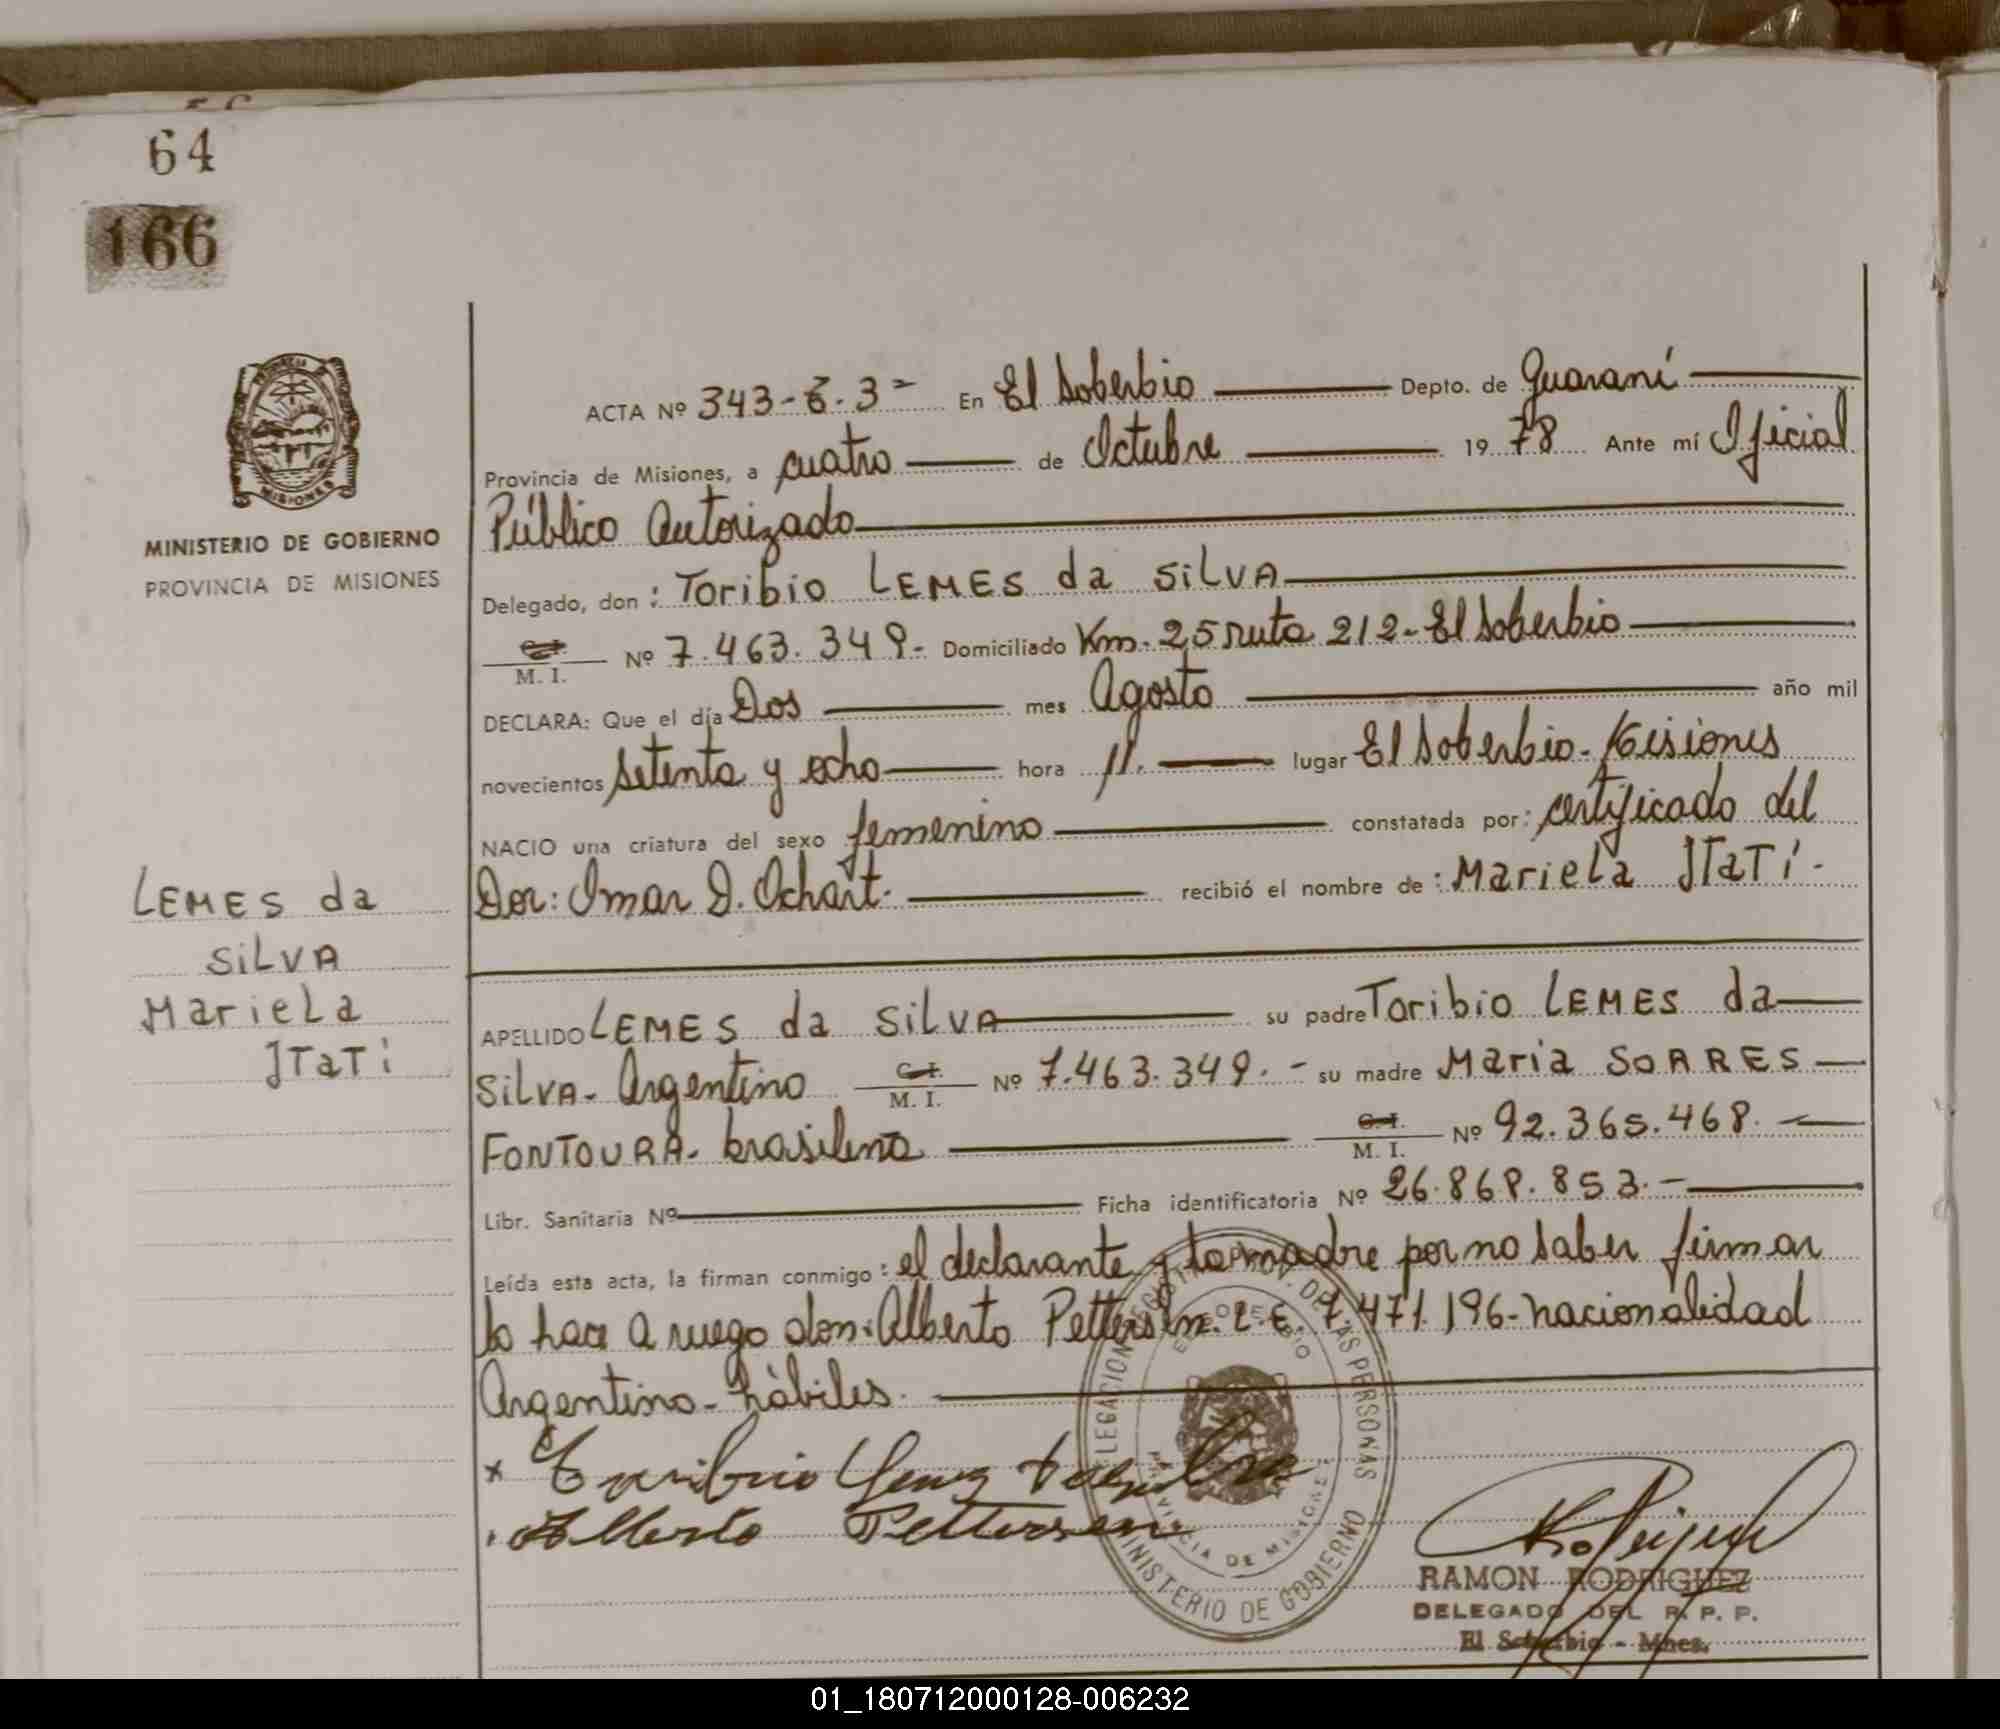 64
166
MINISTERIO DE GOBIERNO
PROVINCIA DE MISIONES
ACTA Nº 343-E.3- En El Soberbio Depto. de Guaraní
Provincia de Misiones, a cuatro de Octubre 1978 Ante mí Oficial
Público Autorizado
Delegado, don : Toribio LEMES da SiLVA
C. I. M. I. Nº 7.463.349.- Domiciliado Km. 25 ruta 212-El Soberbio
DECLARA: Que el día Dos mes Agosto año mil
novecientos setenta y ocho hora 11. lugar El Soberbio-Misiones
NACIO una criatura del sexo femenino constatada por: certificado del
Dor: Omar D. Ochart. recibió el nombre de : Mariela ITaTí.-
LEMES da
SiLVA
Mariela
ITaTí
APELLIDO LEMES da SiLVA su padre Toribio LEMES da
SiLVA- Argentino C. I. M. I. Nº 7.463.349.- su madre Maria SOARES
FONTOURA- brasilena C. I. M. I. Nº 92.365.468.-
Libr. Sanitaria Nº Ficha identificatoria Nº 26.868.853.-
Leída esta acta, la firman conmigo : el declarante y la madre por no saber firmar
lo hace a ruego don: Alberto Pettersen. L.E. 7.471.196-nacionalidad
Argentino-hábiles.
Alberto Pettersen
DELEGACION REGISTRO PROV. DE LAS PERSONAS
EL SOBERBIO
PROVINCIA DE MISIONES
MINISTERIO DE GOBIERNO
RAMON RODRIGUEZ
DELEGADO DEL R. P. P.
El Soberbio - Mnes.
01_180712000128-006232